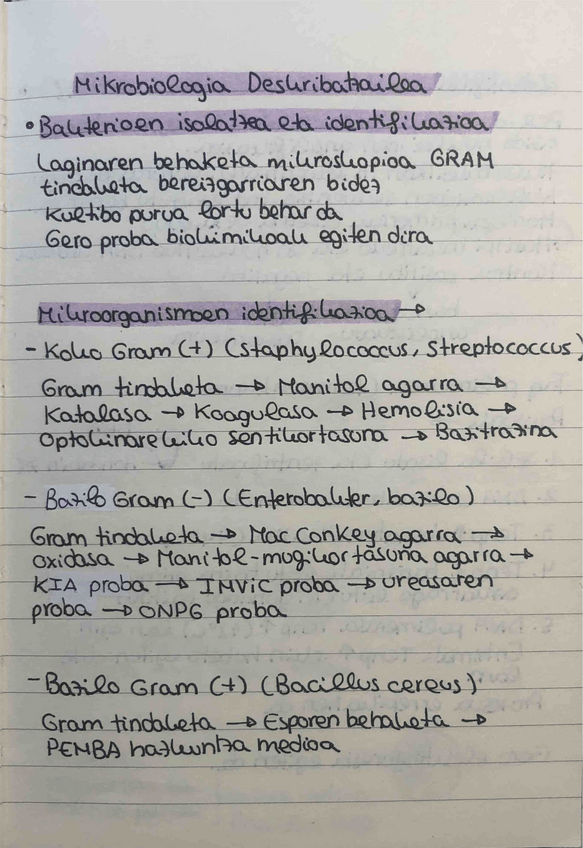 Mikrobiologia Deskribatzailea
• Bakterioen isolatzea eta identifikazioa
Laginaren behaketa mikroskopioa GRAM
tindaketa bereizgarriaren bidez
Kultibo purua lortu behar da
Gero proba biokimikoak egiten dira
Mikroorganismoen identifikazioa →
- Koko Gram (+) (Staphylococcus, Streptococcus)
Gram tindaketa → Manitol agarra →
Katalasa → Koagulasa → Hemolisia →
Optokinarekiko sentikortasuna → Bazitrazina
- Bazilo Gram (-) (Enterobakter, bazilo)
Gram tindaketa → Mac Conkey agarra →
oxidasa → Manitol-mugikortasuna agarra →
KIA proba → IMViC proba → ureasaren
proba → ONPG proba
- Bazilo Gram (+) (Bacillus cereus)
Gram tindaketa → Esporen behaketa →
PEMBA hazkuntza medioa